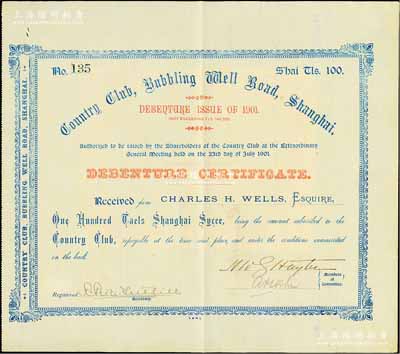 No. 135
Shai Tls. 100.
Country Club, Bubbling Well Road, Shanghai.
DEBENTURE ISSUE OF 1901.
Authorized to be raised by the Shareholders of the Country Club at the Extraordinary
General Meeting held on the 23rd day of July 1901.
DEBENTURE CERTIFICATE.
Received from CHARLES H. WELLS, ESQUIRE,
One Hundred Taels Shanghai Sycee, being the amount subscribed to the
Country Club, repayable at the time and place and under the conditions enumerated
on the back.
Members
of
Committee
Registered
Secretary
COUNTRY CLUB, BUBBLING WELL ROAD, SHANGHAI